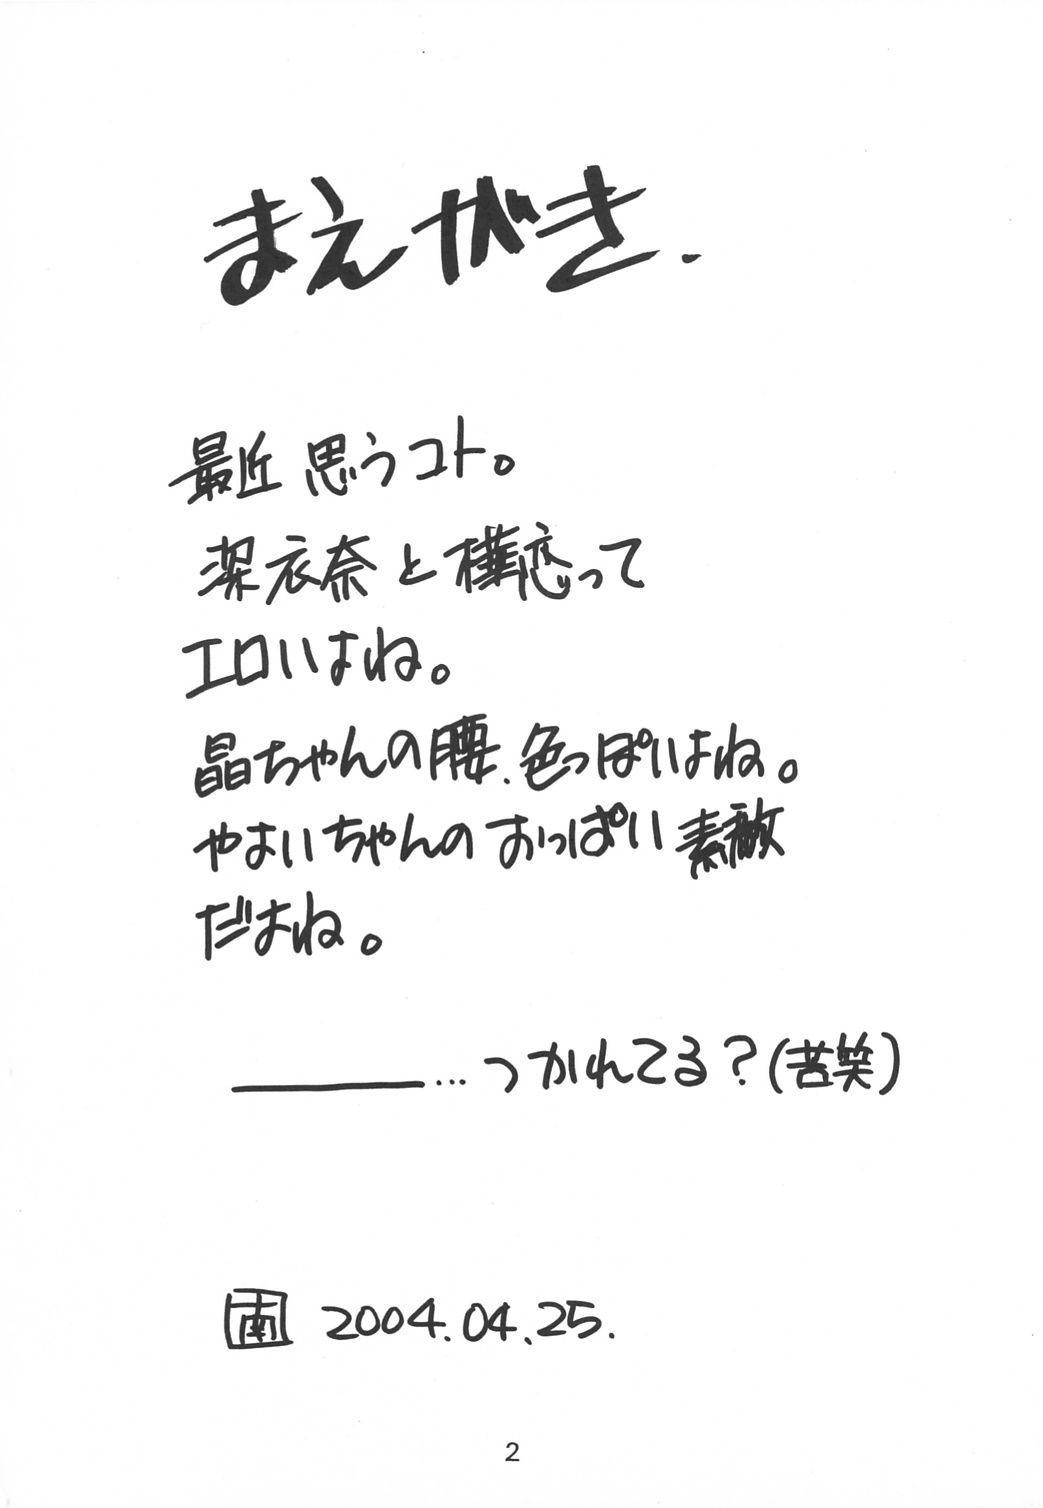 まえがき.
最近 思うコト。
深衣奈と樺恋って
エロいよね。
晶ちゃんの腰、色っぽいよね。
やよいちゃんの おっぱい 素敵
だよね。
————…つかれてる？(苦笑)
南 2004.04.25.
2